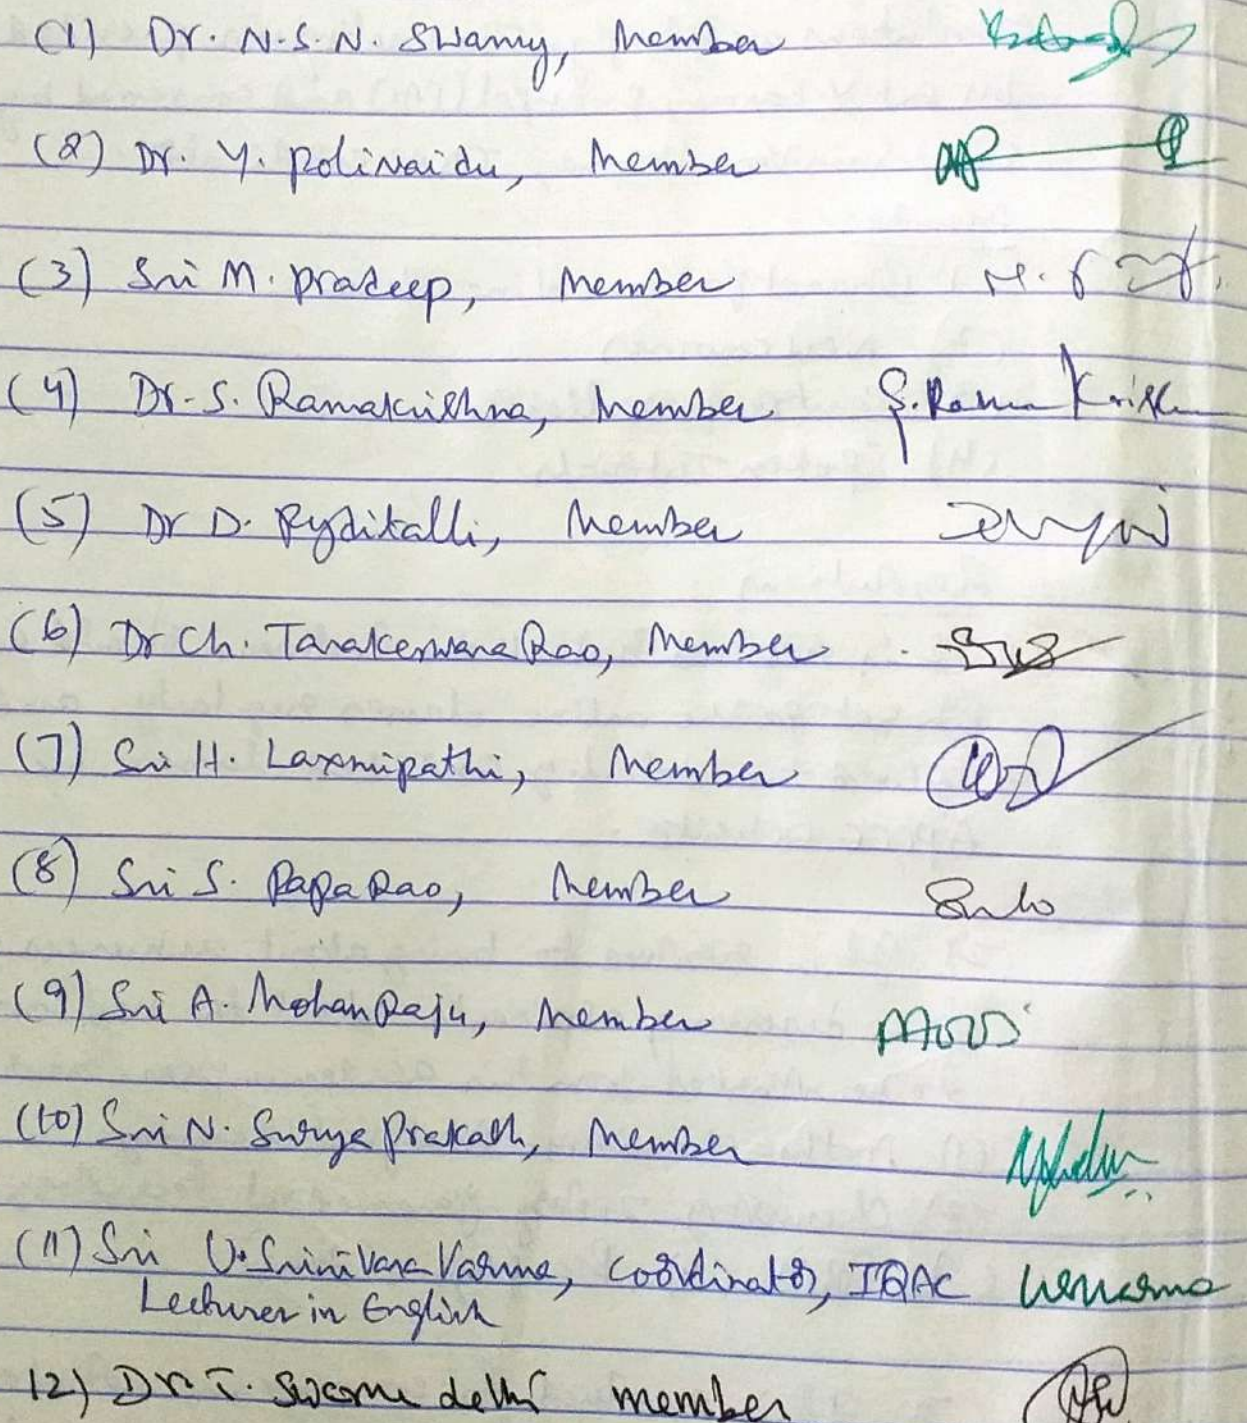 (1) Dr. N.S.N. Swamy, Member
(2) Dr. Y. Polinaidu, Member
(3) Sri M. Pradeep, Member
(4) Dr. S. Ramakrishna, Member S. Rama Krishn
(5) Dr D. Pyditalli, Member
(6) Dr Ch. Tarakeswara Rao, Member
(7) Sri H. Laxmipathi, Member
(8) Sri S. Papa Rao, Member
(9) Sri A. Mohan Raju, Member
(10) Sri N. Surya Prakash, Member
(11) Sri U. Srinivasa Varma, Coordinator, IQAC
Lecturer in English
12) Dr. T. member